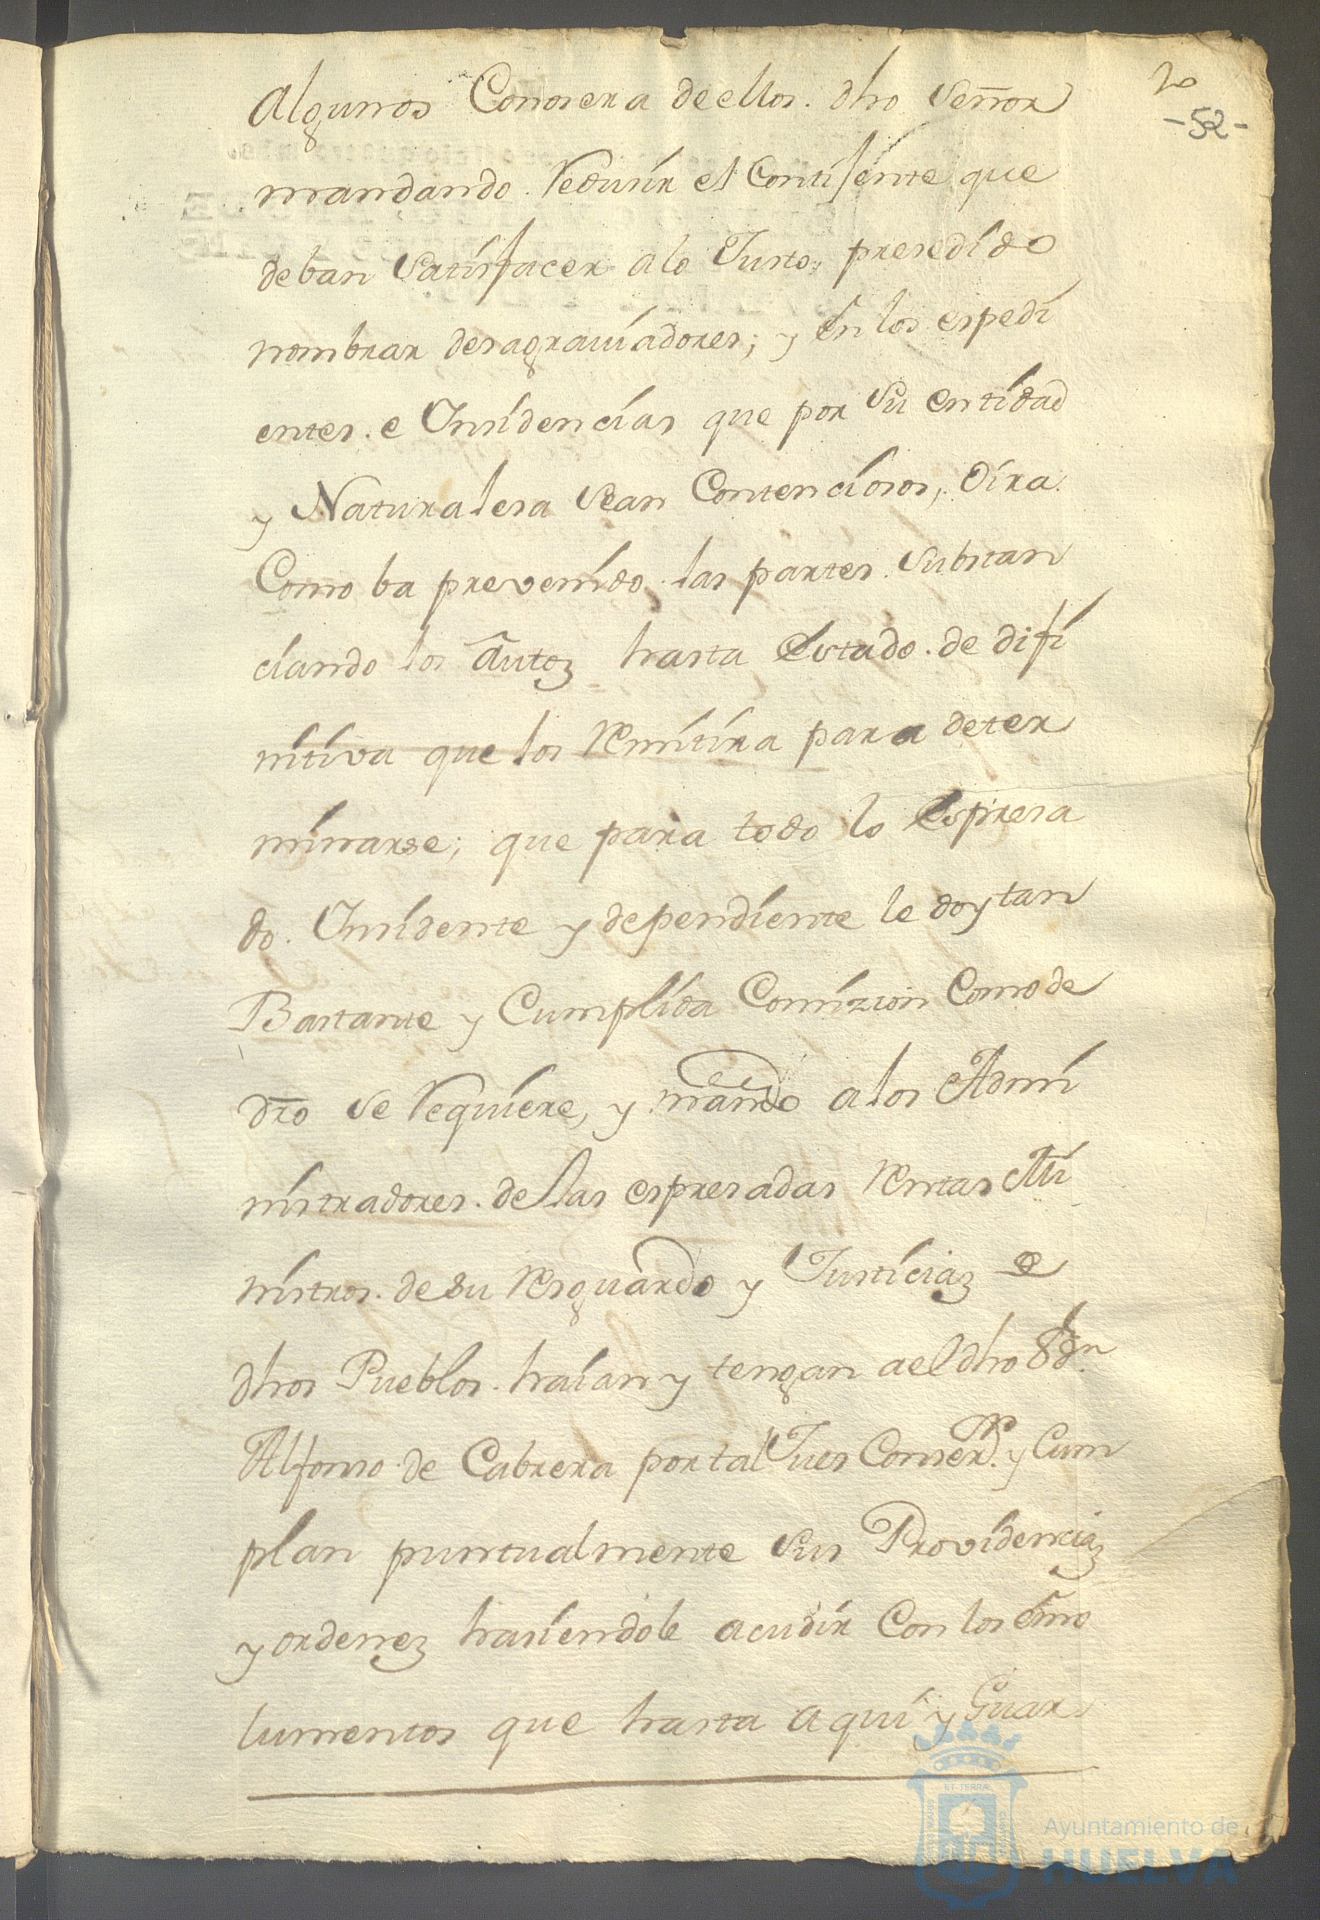 2o
-52-
Algunos Conosera de ellos. dho Señor
mandando. Redusir el Contijente que
deban Satisfacer a lo Justo, presedido
nombrar desagraviadores; y en los espedi
entes. e Insidencias que por Su entidad
y Naturalesa Sean Contenciosos, Oira
Como ba prevenido. las partes. Substan
ciando los Autoz hasta Estado. de difi
nitiva que los Remitira para deter
minarse; que para todo lo Espresa
do. Insidente y dependiente le doy tan
Bastante y Cumplida Comizion Como de
dro se Requiere, y mando a los Admi
nistradores. de las espresadas Rentas Mi
nistros. de su Resguardo y Justiciaz de
dhos Pueblos. haian y tengan a el dho S.r d.n
Alfonso de Cabrera por tal Jues Conser.or y Cum
plan puntualmente Sus Providenciaz
y ordenez hasiendole acudir Con los emo
lumentos que hasta aqui y Guar
Ayuntamiento de
HUELVA